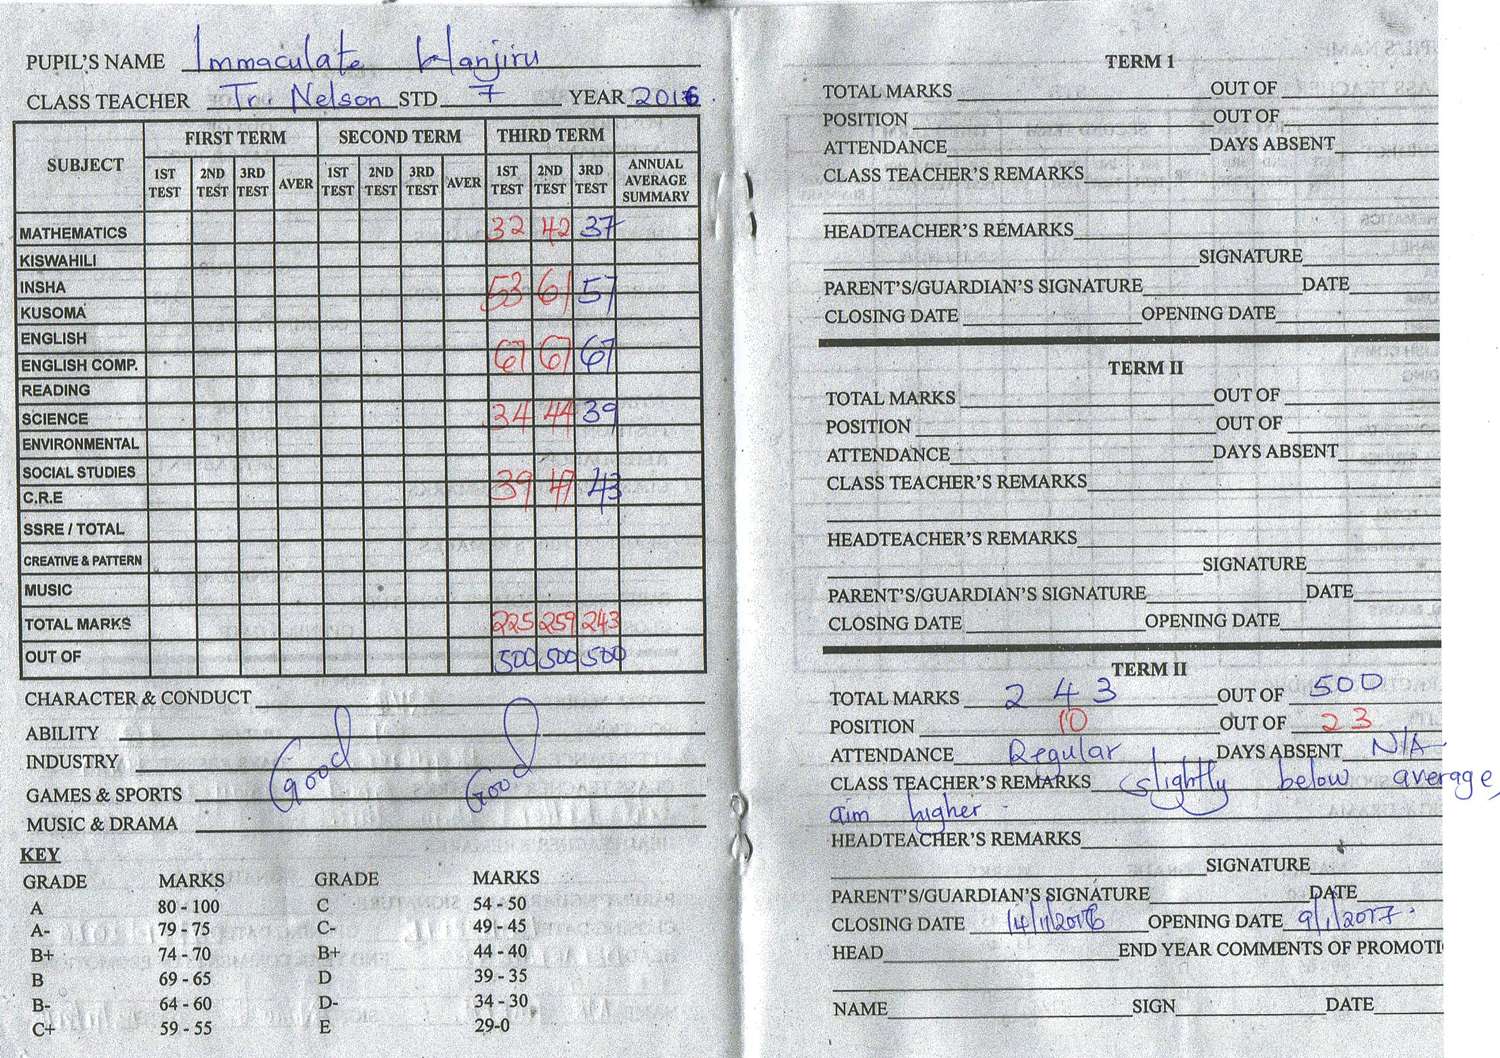 PUPIL'S NAME Immaculate Wanjiru
CLASS TEACHER Tr. Nelson STD 7 YEAR 2016.
SUBJECT FIRST TERM SECOND TERM THIRD TERM
1ST TEST 2ND TEST 3RD TEST AVER 1ST TEST 2ND TEST 3RD TEST AVER 1ST TEST 2ND TEST 3RD TEST ANNUAL AVERAGE SUMMARY
MATHEMATICS 32 42 37
KISWAHILI
INSHA 53 61 57
KUSOMA
ENGLISH
ENGLISH COMP. 67 67 67
READING
SCIENCE 34 44 39
ENVIRONMENTAL
SOCIAL STUDIES
C.R.E 39 47 43
SSRE / TOTAL
CREATIVE & PATTERN
MUSIC
TOTAL MARKS 225 259 243
OUT OF 500 500 500
CHARACTER & CONDUCT
ABILITY
INDUSTRY Good Good
GAMES & SPORTS
MUSIC & DRAMA
KEY
GRADE MARKS GRADE MARKS
A 80 - 100 C 54 - 50
A- 79 - 75 C- 49 - 45
B+ 74 - 70 B+ 44 - 40
B 69 - 65 D 39 - 35
B- 64 - 60 D- 34 - 30
C+ 59 - 55 E 29-0
TERM 1
TOTAL MARKS OUT OF
POSITION OUT OF
ATTENDANCE DAYS ABSENT
CLASS TEACHER'S REMARKS
HEADTEACHER'S REMARKS
SIGNATURE
PARENT'S/GUARDIAN'S SIGNATURE DATE
CLOSING DATE OPENING DATE
TERM II
TOTAL MARKS OUT OF
POSITION OUT OF
ATTENDANCE DAYS ABSENT
CLASS TEACHER'S REMARKS
HEADTEACHER'S REMARKS
SIGNATURE
PARENT'S/GUARDIAN'S SIGNATURE DATE
CLOSING DATE OPENING DATE
TERM II
TOTAL MARKS 243 OUT OF 500
POSITION 10 OUT OF 23
ATTENDANCE Regular DAYS ABSENT N/A
CLASS TEACHER'S REMARKS Slightly below average,
aim higher.
HEADTEACHER'S REMARKS
SIGNATURE
PARENT'S/GUARDIAN'S SIGNATURE DATE
CLOSING DATE 14/11/2016 OPENING DATE 9/1/2017.
HEAD END YEAR COMMENTS OF PROMOTI
NAME SIGN DATE